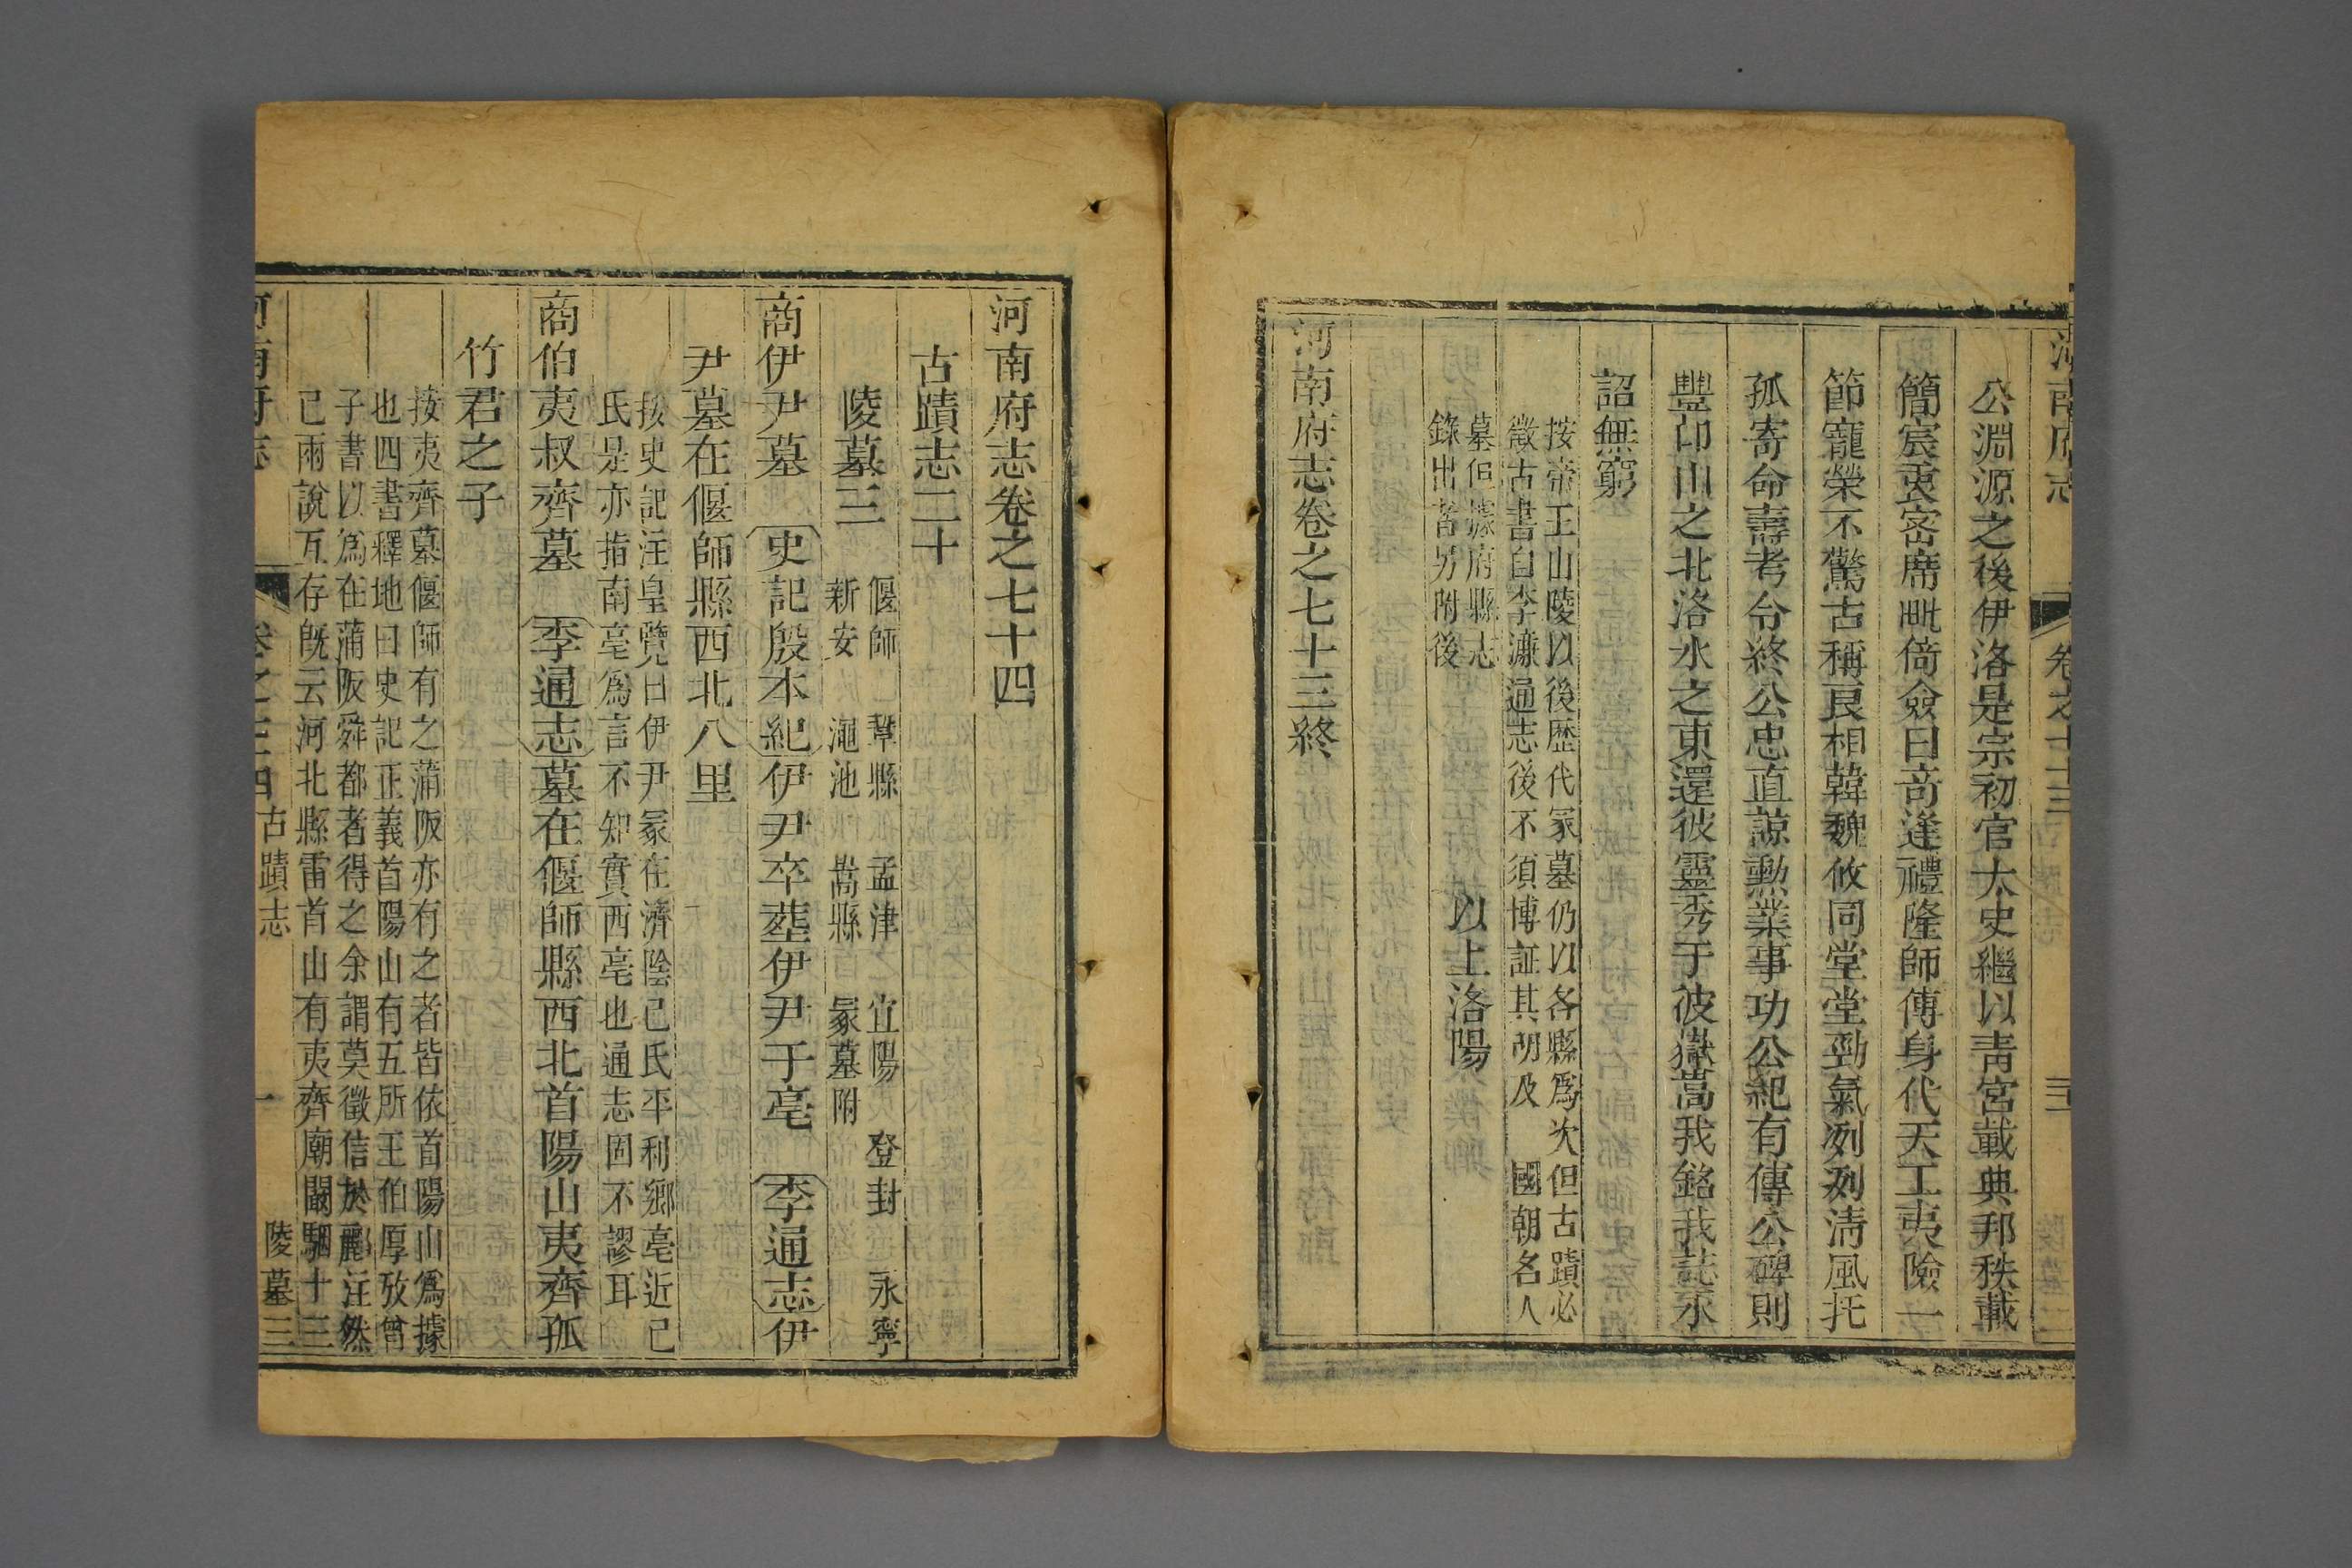 河南府志
卷之七十三
三
公淵源之後伊洛是宗初官太史繼以靑宮載典邦秩載
簡宸衷密席毗倚僉曰奇逢禮隆師傅身代天工夷險一
節寵榮不驚古稱良相韓魏攸同堂堂勁氣烈烈淸風托
孤寄命壽考令終公忠直諒勳業事功公紀有傳公碑則
豐邙山之北洛水之東還彼靈秀于彼嶽嵩我銘我誌永
詔無窮
按帝王山陵以後歷代冢墓仍以各縣爲次但古蹟必
徵古書自李濂通志後不須博証其明及 國朝名人
墓但據府縣志
錄出者另附後
以上洛陽
河南府志卷之七十三終
河南府志卷之七十四
古蹟志二十
陵墓三
偃師 鞏縣 孟津 宜陽 登封 永寧
新安 澠池 嵩縣 冢墓附
商伊尹墓 史記殷本紀伊尹卒葬伊尹于亳 李通志伊
尹墓在偃師縣西北八里
按史記注皇覽曰伊尹冢在濟陰己氏平利鄉亳近己
氏是亦指南亳爲言不知實西亳也通志固不謬耳
商伯夷叔齊墓 李通志墓在偃師縣西北首陽山夷齊孤
竹君之子
按夷齊墓偃師有之蒲阪亦有之者皆依首陽山爲據
也四書釋地曰史記正義首陽山有五所王伯厚攷曾
子書以爲在蒲阪舜都者得之余謂莫徵信於酈注然
已兩說互存旣云河北縣雷首山有夷齊廟闞駰十三
河南府志
卷之七十四
古蹟志
一
陵墓三